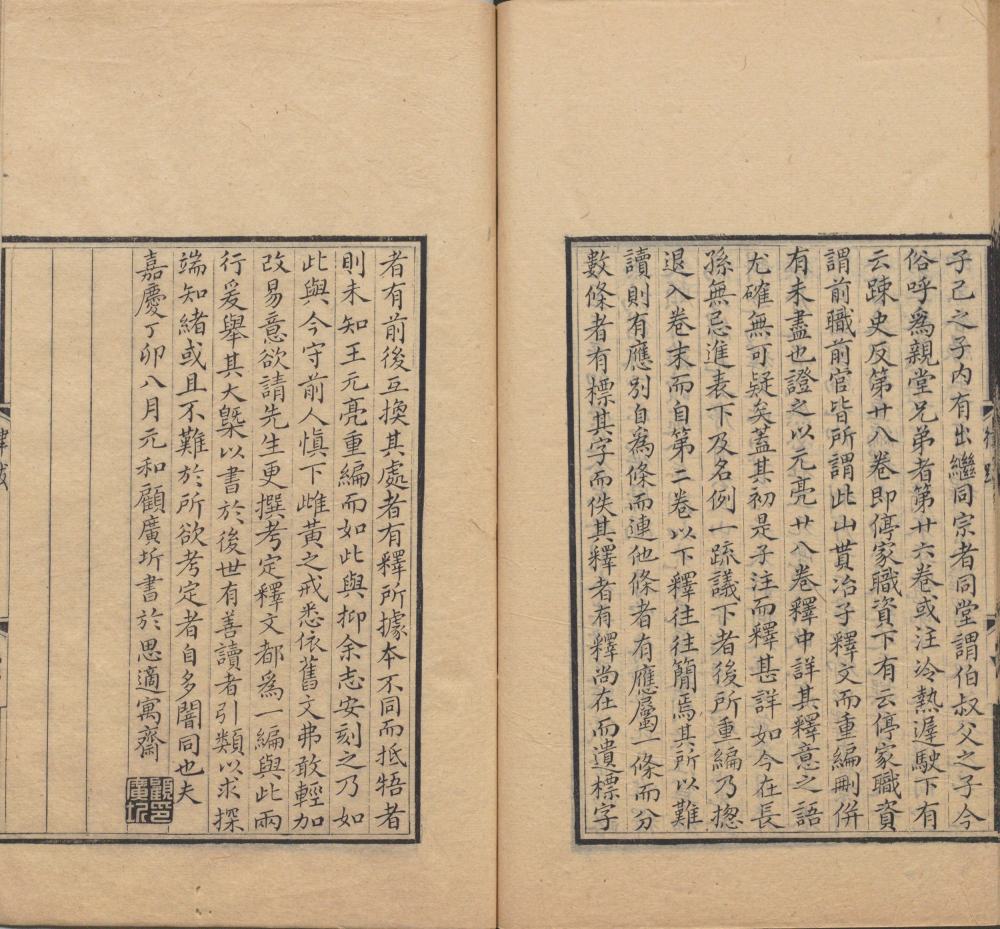 子己之子内有出繼同宗者同堂謂伯叔父之子今
俗呼爲親堂兄弟者第廿六卷或注冷熱遲駛下有
云踈史反第廿八卷即停家職資下有云停家職資
謂前職前官皆所謂此山貰冶子釋文而重編刪併
有未盡也證之以元亮廿八卷釋中詳其釋意之語
尤確無可疑矣蓋其初是子注而釋甚詳如今在長
孫無忌進表下及名例一疏議下者後所重編乃揔
退入卷末而自第二卷以下釋往往簡焉其所以難
讀則有應別自為條而連他條者有應屬一條而分
數條者有標其字而佚其釋者有釋尚在而遺標字
者有前後互換其處者有釋所據本不同而抵牾者
則未知王元亮重編而如此與抑余志安刻之乃如
此與今守前人慎下雌黃之戒悉依舊文弗敢輕加
改易意欲請先生更撰考定釋文都爲一編與此兩
行爰舉其大槩以書於後世有善讀者引類以求探
端知緒或且不難於所欲考定者自多闇同也夫
嘉慶丁卯八月元和顧廣圻書於思適寓齋
顧廣圻印
律跋